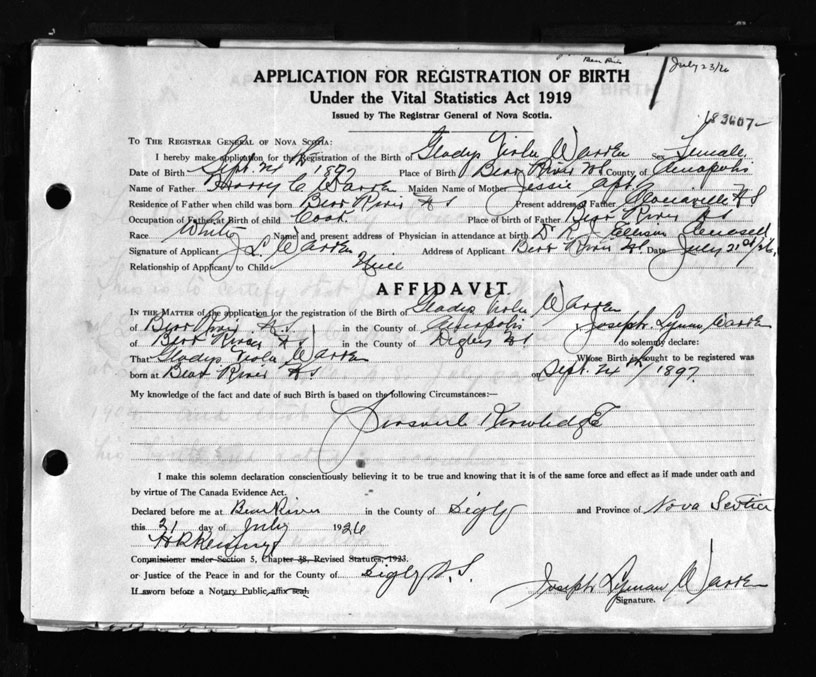 Bear River
July 23/26
APPLICATION FOR REGISTRATION OF BIRTH
Under the Vital Statistics Act 1919
Issued by The Registrar General of Nova Scotia.
83607
TO THE REGISTRAR GENERAL OF NOVA SCOTIA:
I hereby make application for the Registration of the Birth of Gladys Viola Warren Sex Female
Date of Birth Sept. 24th 1897 Place of Birth Bear River NS County of Annapolis
Name of Father Harry C Warren Maiden Name of Mother Jessie
Residence of Father when child was born Bear River NS Present address of Father NS
Occupation of Father at Birth of child Cook Place of birth of Father Bear River NS
Race White Name and present address of Physician in attendance at birth Dr R J Ellison Deceased
Signature of Applicant J. L. Warren Address of Applicant Bear River NS. Date July 21st/26
Relationship of Applicant to Child
AFFIDAVIT.
IN THE MATTER of the application for the registration of the Birth of Gladys Viola Warren
of Bear River N.S. in the County of Annapolis Joseph Lyman Warren
of Bear River NS in the County of Digby NS do solemnly declare:
That Gladys Viola Warren Whose Birth is sought to be registered was
born at Bear River NS on Sept. 24th/1897
My knowledge of the fact and date of such Birth is based on the following Circumstances:—
Personal Knowledge
I make this solemn declaration conscientiously believing it to be true and knowing that it is of the same force and effect as if made under oath and
by virtue of The Canada Evidence Act.
Declared before me at Bear River in the County of Digby and Province of Nova Scotia
this 21 day of July 1926
Commissioner under Section 5, Chapter 38, Revised Statutes, 1923.
or Justice of the Peace in and for the County of Digby N.S.
If sworn before a Notary Public affix seal.
Joseph Lyman Warren
Signature.